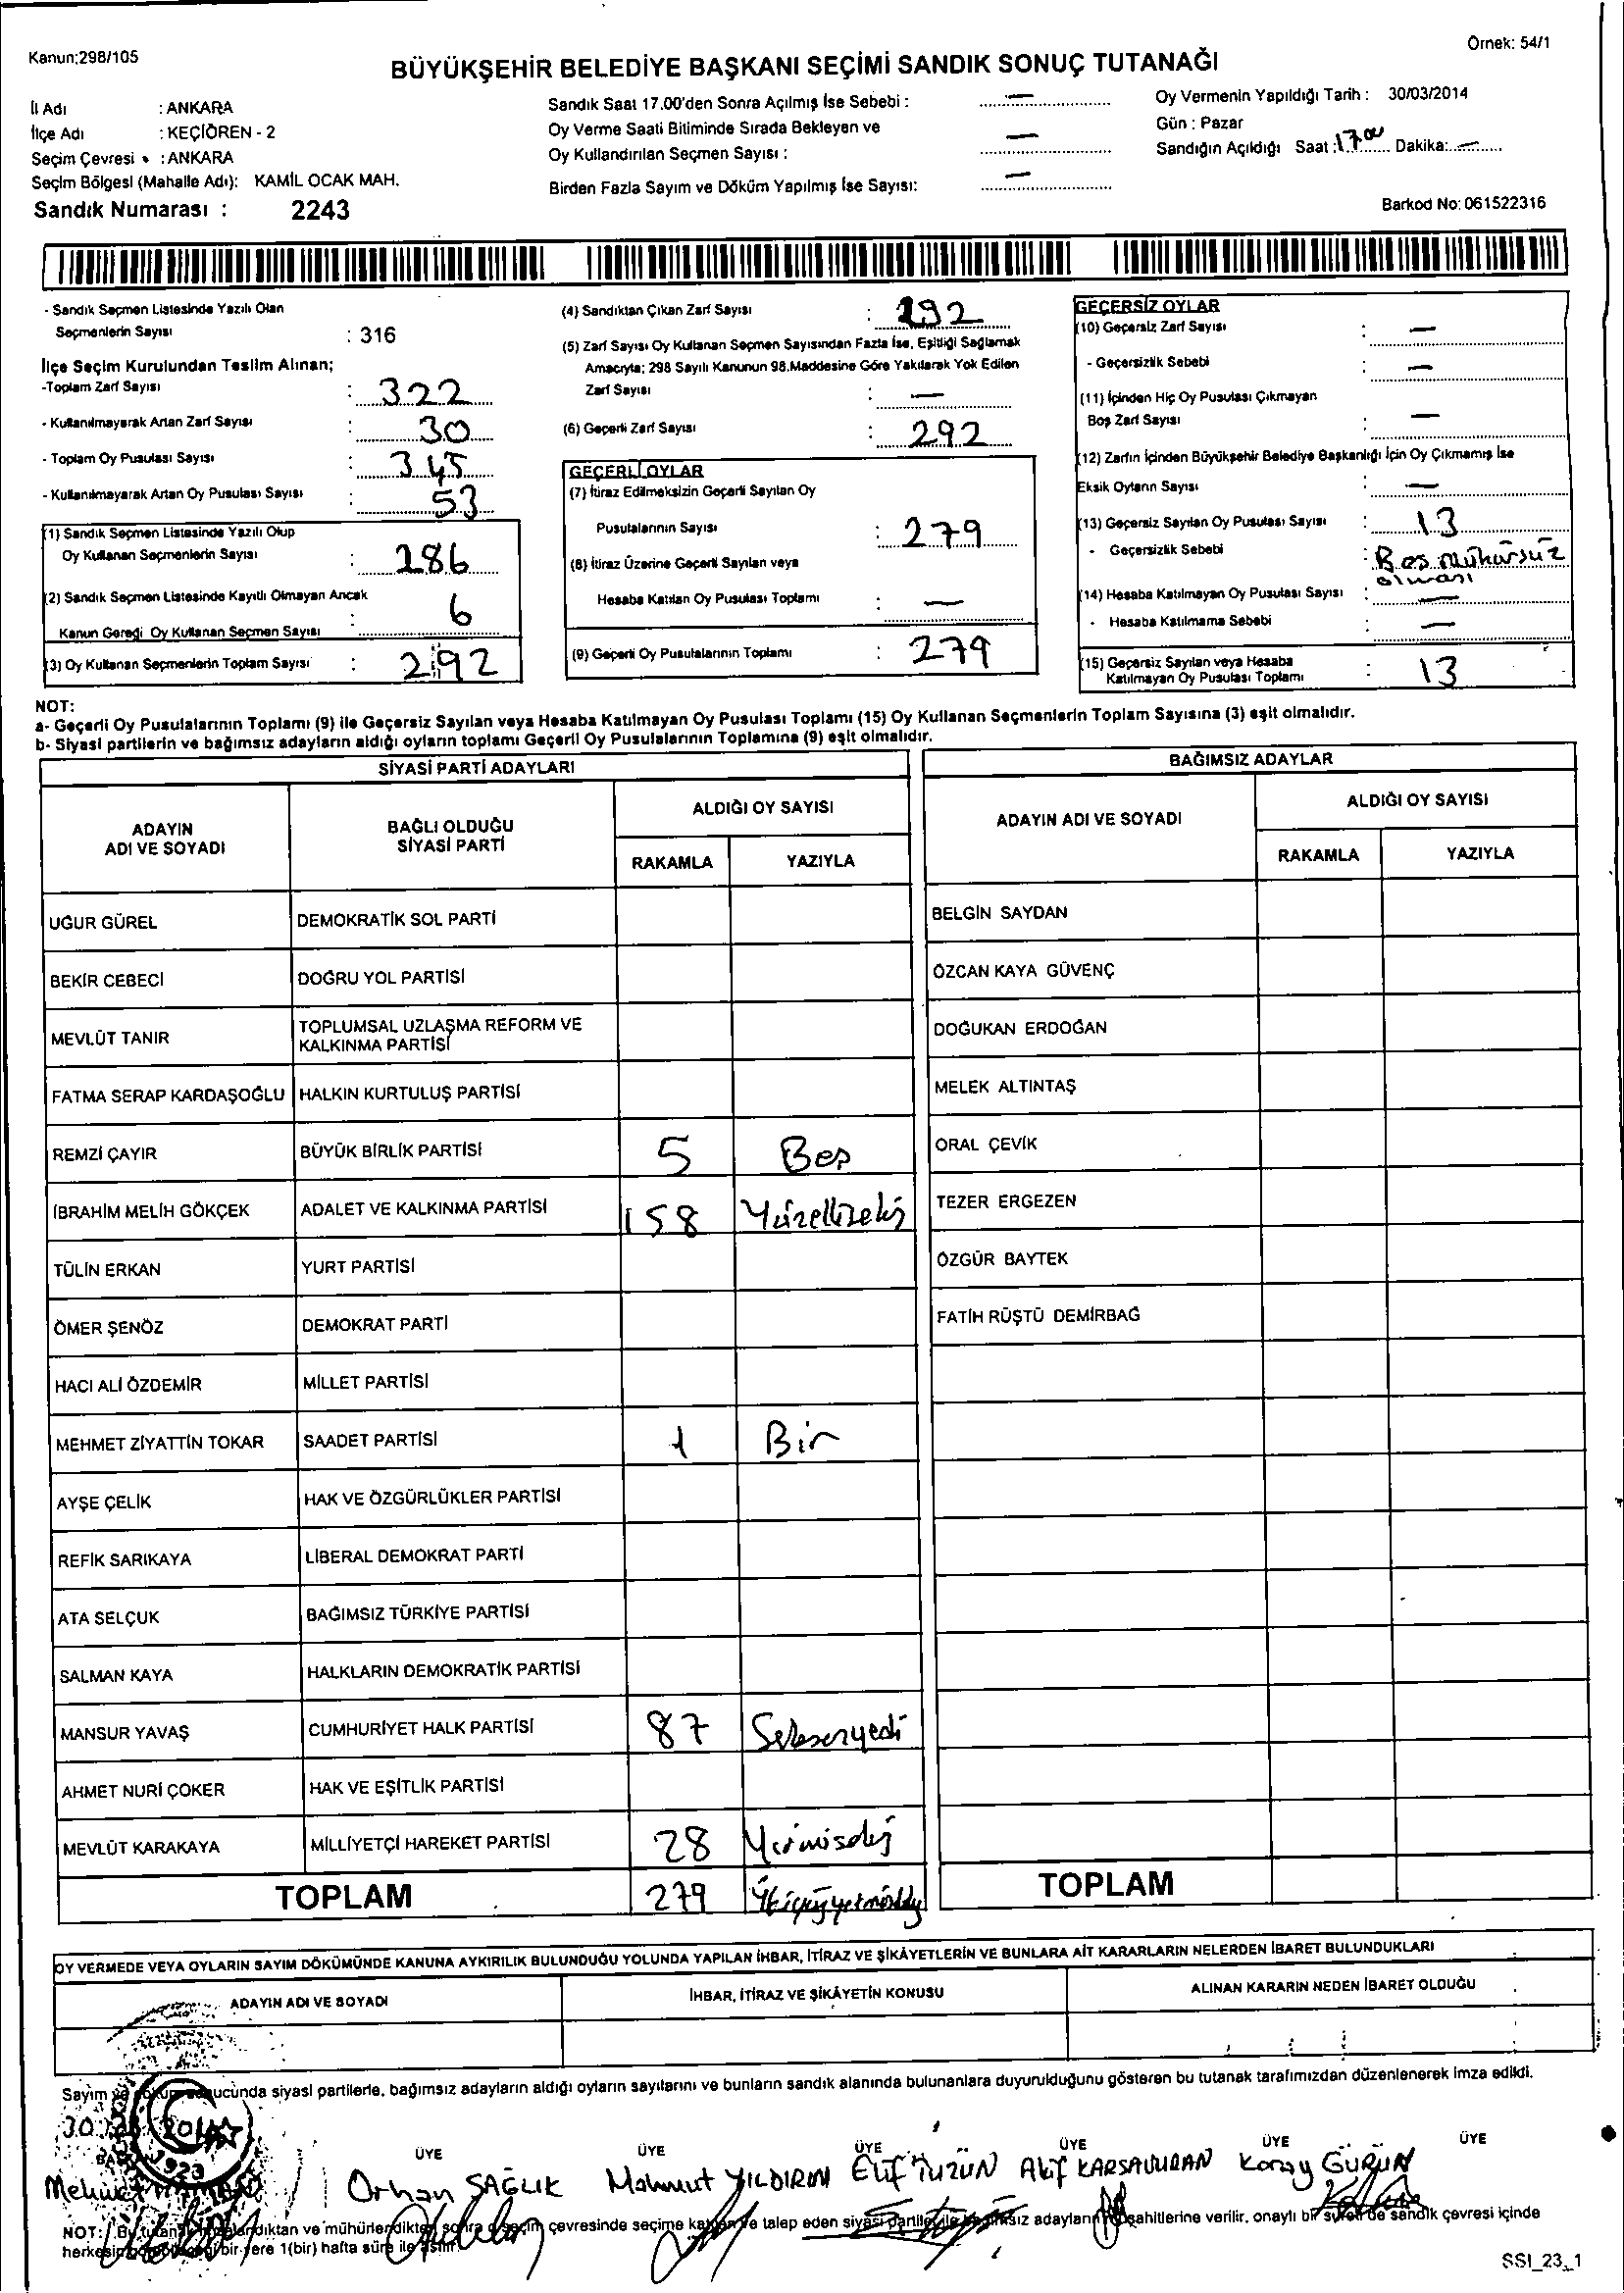 Kanun:298/105
Örnek: 54/1
BÜYÜKŞEHİR BELEDİYE BAŞKANI SEÇİMİ SANDIK SONUÇ TUTANAĞI
İl Adı : ANKARA
İlçe Adı : KEÇİÖREN - 2
Seçim Çevresi : ANKARA
Seçim Bölgesi (Mahalle Adı): KAMİL OCAK MAH.
Sandık Numarası : 2243
Sandık Saat 17.00'den Sonra Açılmış İse Sebebi : —
Oy Verme Saati Bitiminde Sırada Bekleyen ve
Oy Kullandırılan Seçmen Sayısı : —
Birden Fazla Sayım ve Döküm Yapılmış İse Sayısı: —
Oy Vermenin Yapıldığı Tarih : 30/03/2014
Gün : Pazar
Sandığın Açıldığı Saat : 17.00 Dakika: —
Barkod No: 061522316
- Sandık Seçmen Listesinde Yazılı Olan
Seçmenlerin Sayısı : 316
İlçe Seçim Kurulundan Teslim Alınan;
-Toplam Zarf Sayısı : 322
- Kullanılmayarak Artan Zarf Sayısı : 30
- Toplam Oy Pusulası Sayısı : 345
- Kullanılmayarak Artan Oy Pusulası Sayısı : 53
(1) Sandık Seçmen Listesinde Yazılı Olup
Oy Kullanan Seçmenlerin Sayısı : 286
(2) Sandık Seçmen Listesinde Kayıtlı Olmayan Ancak
Kanun Gereği Oy Kullanan Seçmen Sayısı : 6
(3) Oy Kullanan Seçmenlerin Toplam Sayısı : 292
(4) Sandıktan Çıkan Zarf Sayısı : 292
(5) Zarf Sayısı Oy Kullanan Seçmen Sayısından Fazla İse, Eşitliği Sağlamak
Amacıyla; 298 Sayılı Kanunun 98.Maddesine Göre Yakılarak Yok Edilen
Zarf Sayısı : —
(6) Geçerli Zarf Sayısı : 292
GEÇERLİ OYLAR
(7) İtiraz Edilmeksizin Geçerli Sayılan Oy
Pusulalarının Sayısı : 279
(8) İtiraz Üzerine Geçerli Sayılan veya
Hesaba Katılan Oy Pusulası Toplamı : —
(9) Geçerli Oy Pusulalarının Toplamı : 279
GEÇERSİZ OYLAR
(10) Geçersiz Zarf Sayısı : —
- Geçersizlik Sebebi : —
(11) İçinden Hiç Oy Pusulası Çıkmayan
Boş Zarf Sayısı : —
(12) Zarfın İçinden Büyükşehir Belediye Başkanlığı İçin Oy Çıkmamış İse
Eksik Oyların Sayısı : —
(13) Geçersiz Sayılan Oy Pusulası Sayısı : 13
- Geçersizlik Sebebi : Boş mühürsüz
olması
(14) Hesaba Katılmayan Oy Pusulası Sayısı : —
- Hesaba Katılmama Sebebi : —
(15) Geçersiz Sayılan veya Hesaba
Katılmayan Oy Pusulası Toplamı : 13
NOT:
a- Geçerli Oy Pusulalarının Toplamı (9) ile Geçersiz Sayılan veya Hesaba Katılmayan Oy Pusulası Toplamı (15) Oy Kullanan Seçmenlerin Toplam Sayısına (3) eşit olmalıdır.
b- Siyasi partilerin ve bağımsız adayların aldığı oyların toplamı Geçerli Oy Pusulalarının Toplamına (9) eşit olmalıdır.
SİYASİ PARTİ ADAYLARI
ADAYIN
ADI VE SOYADI
BAĞLI OLDUĞU
SİYASİ PARTİ
ALDIĞI OY SAYISI
RAKAMLA YAZIYLA
UĞUR GÜREL DEMOKRATİK SOL PARTİ
BEKİR CEBECİ DOĞRU YOL PARTİSİ
MEVLÜT TANIR TOPLUMSAL UZLAŞMA REFORM VE
KALKINMA PARTİSİ
FATMA SERAP KARDAŞOĞLU HALKIN KURTULUŞ PARTİSİ
REMZİ ÇAYIR BÜYÜK BİRLİK PARTİSİ 5 Beş
İBRAHİM MELİH GÖKÇEK ADALET VE KALKINMA PARTİSİ 158 Yüzellisekiz
TÜLİN ERKAN YURT PARTİSİ
ÖMER ŞENÖZ DEMOKRAT PARTİ
HACI ALİ ÖZDEMİR MİLLET PARTİSİ
MEHMET ZİYATTİN TOKAR SAADET PARTİSİ 1 Bir
AYŞE ÇELİK HAK VE ÖZGÜRLÜKLER PARTİSİ
REFİK SARIKAYA LİBERAL DEMOKRAT PARTİ
ATA SELÇUK BAĞIMSIZ TÜRKİYE PARTİSİ
SALMAN KAYA HALKLARIN DEMOKRATİK PARTİSİ
MANSUR YAVAŞ CUMHURİYET HALK PARTİSİ 87 Seksenyedi
AHMET NURİ ÇOKER HAK VE EŞİTLİK PARTİSİ
MEVLÜT KARAKAYA MİLLİYETÇİ HAREKET PARTİSİ 28 Yirmisekiz
TOPLAM 279
BAĞIMSIZ ADAYLAR
ADAYIN ADI VE SOYADI
ALDIĞI OY SAYISI
RAKAMLA YAZIYLA
BELGİN SAYDAN
ÖZCAN KAYA GÜVENÇ
DOĞUKAN ERDOĞAN
MELEK ALTINTAŞ
ORAL ÇEVİK
TEZER ERGEZEN
ÖZGÜR BAYTEK
FATİH RÜŞTÜ DEMİRBAĞ
TOPLAM
OY VERMEDE VEYA OYLARIN SAYIM DÖKÜMÜNDE KANUNA AYKIRILIK BULUNDUĞU YOLUNDA YAPILAN İHBAR, İTİRAZ VE ŞİKÂYETLERİN VE BUNLARA AİT KARARLARIN NELERDEN İBARET BULUNDUKLARI
ADAYIN ADI VE SOYADI
İHBAR, İTİRAZ VE ŞİKÂYETİN KONUSU
ALINAN KARARIN NEDEN İBARET OLDUĞU
Sayım ve sonucunda siyasi partilerle, bağımsız adayların aldığı oyların sayılarını ve bunların sandık alanında bulunanlara duyurulduğunu gösteren bu tutanak tarafımızdan düzenlenerek imza edildi.
ÜYE ÜYE ÜYE ÜYE ÜYE ÜYE
Mehmet Orhan SAĞLIK Mahmut YILDIRIM Elif TUZÜN Akif KARSAVURAN Koray GÜRÜN
NOT: Bu ve mühürlendikten sonra çevresinde seçime talep eden siyasi adayların verilir. onaylı bir de sandık çevresi içinde
bir yere 1(bir) hafta süre ile asılır.
SSI_23_1